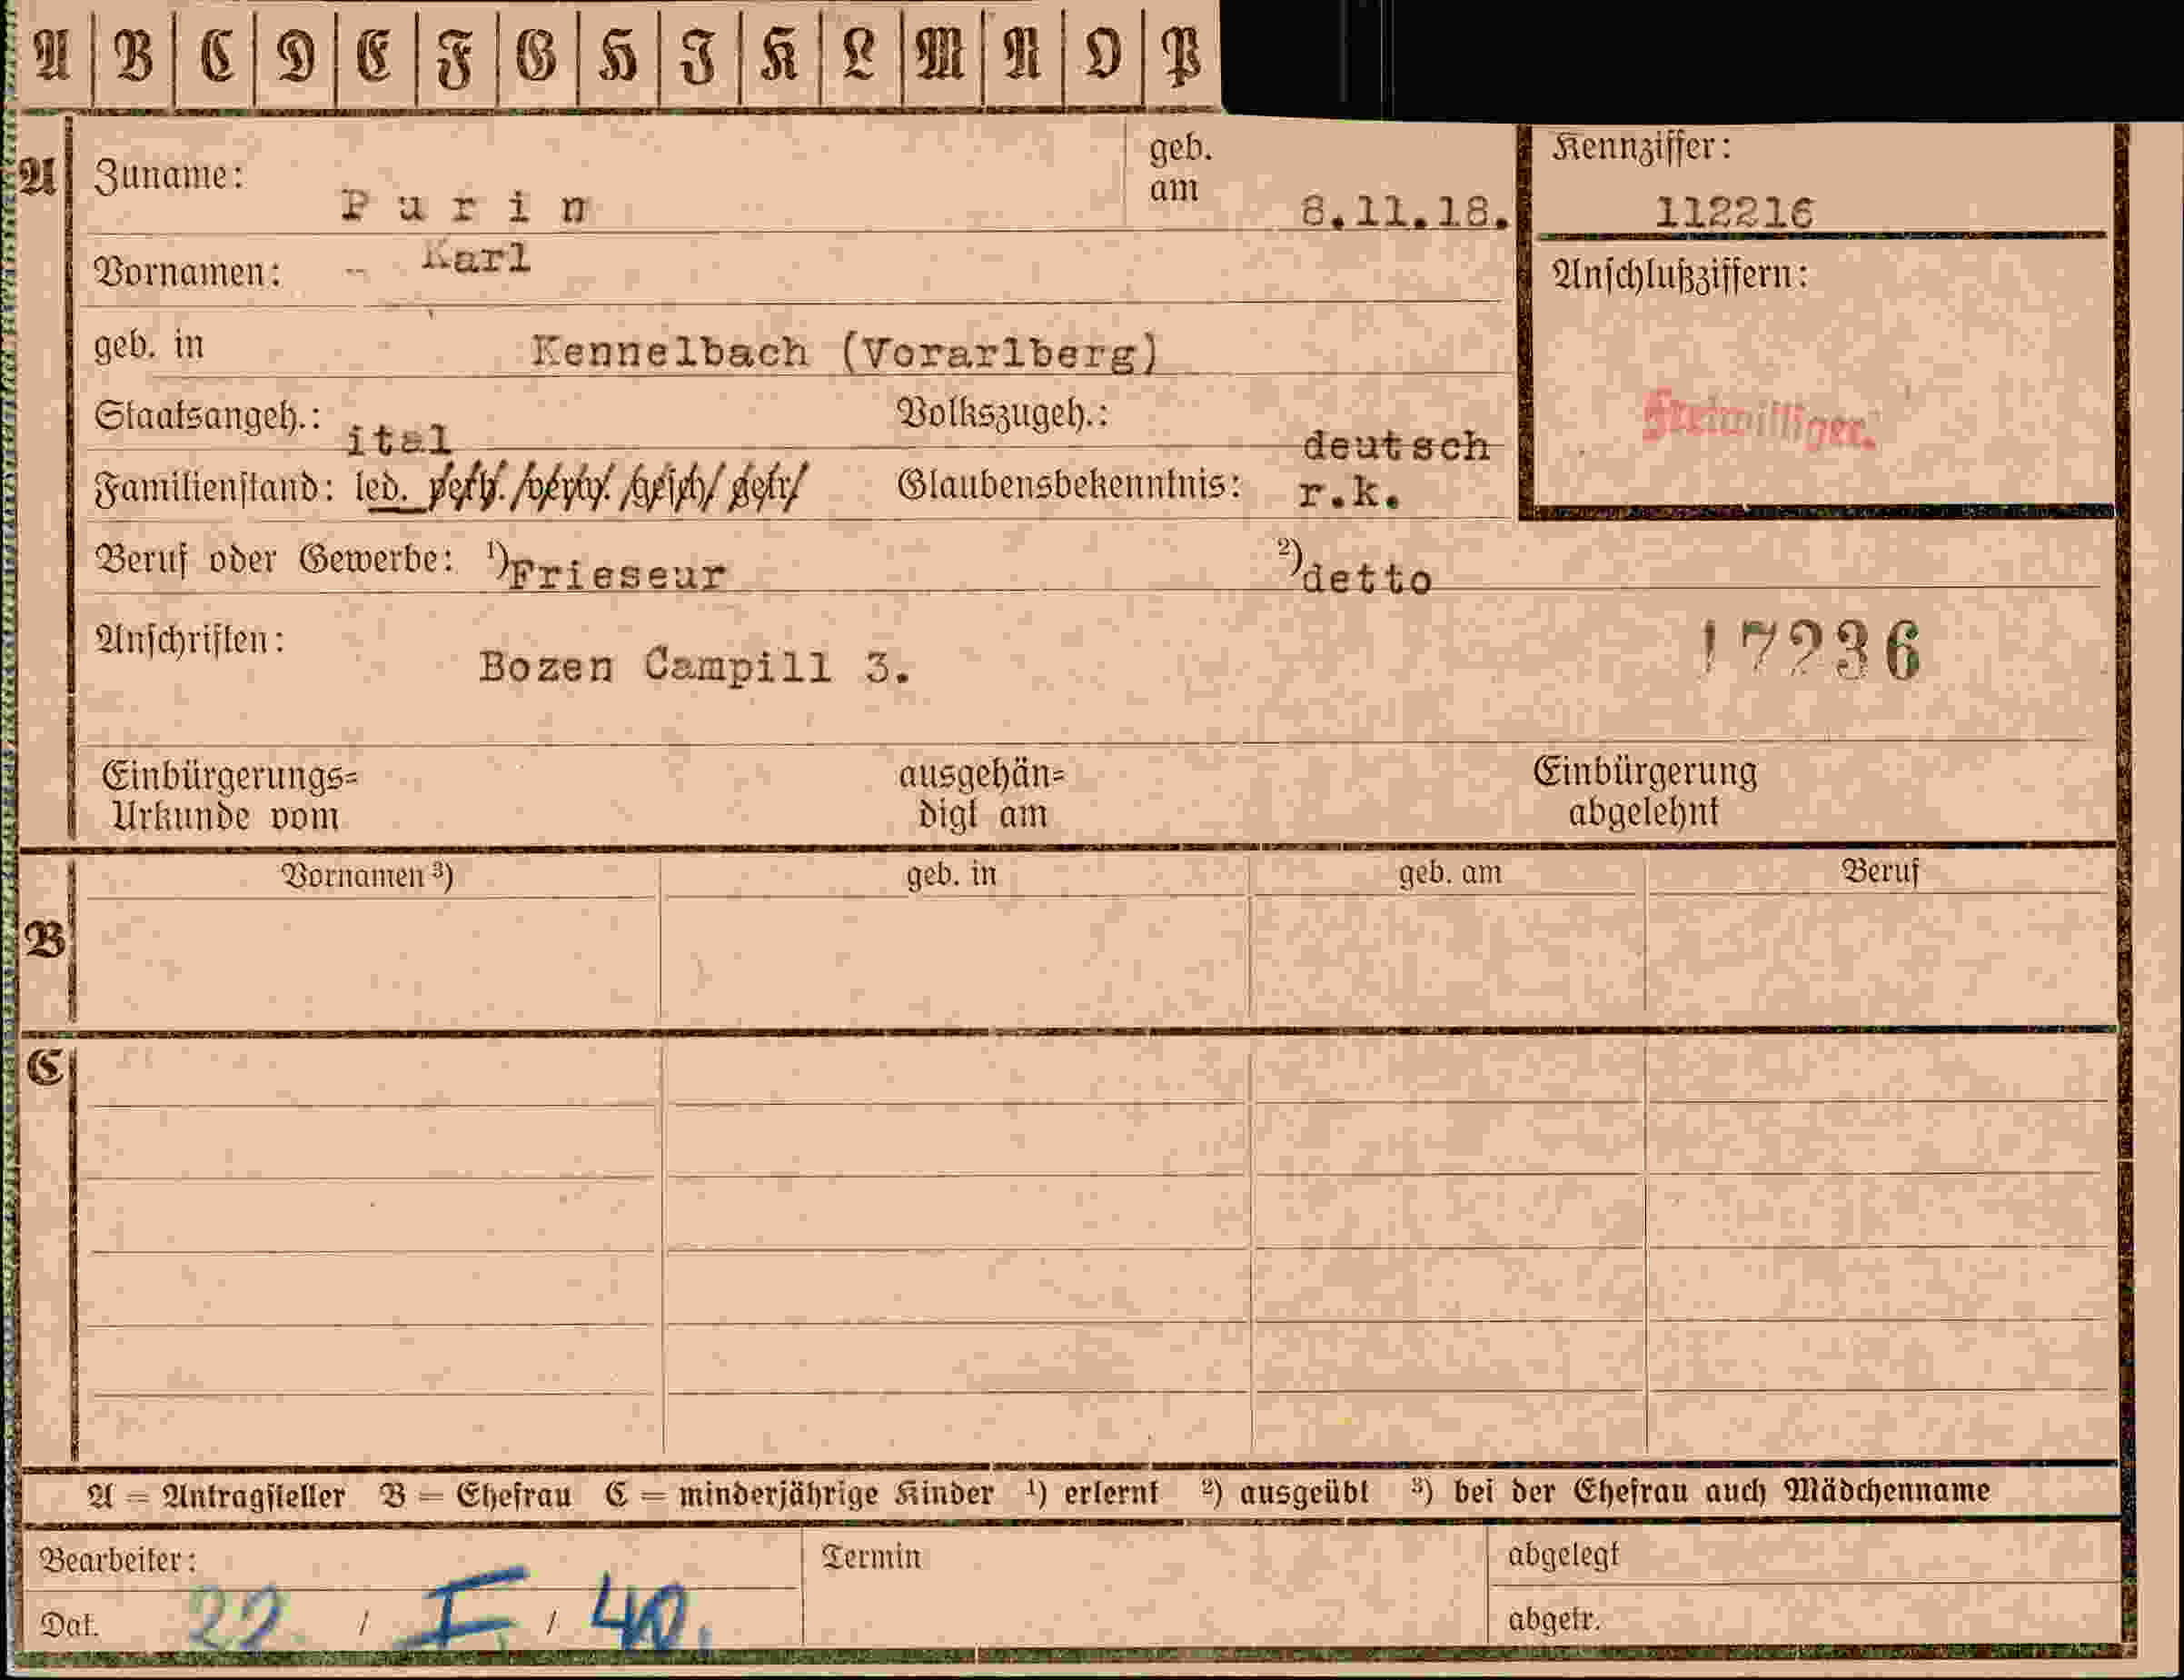 A B C D E F G H I K L M N O P
A
Zuname: Purin
geb. am 8.11.18.
Kennziffer: 112216
Vornamen: - Karl
Anschlußziffern:
geb. in Kennelbach (Vorarlberg)
Freiwilliger.
Staatsangeh.: ital Volkszugeh.: deutsch
Familienstand: led. verh. verw. gesch. getr. Glaubensbekenntnis: r.k.
Beruf oder Gewerbe: ¹) Frieseur ²) detto
Anschriften: Bozen Campill 3. 17236
Einbürgerungs= ausgehän= Einbürgerung
Urkunde vom digt am abgelehnt
B
Vornamen ³) geb. in geb. am Beruf
C
A = Antragsteller B = Ehefrau C = minderjährige Kinder ¹) erlernt ²) ausgeübt ³) bei der Ehefrau auch Mädchenname
Bearbeiter: Termin abgelegt
Dat. 22 / I. / 40. abgetr.